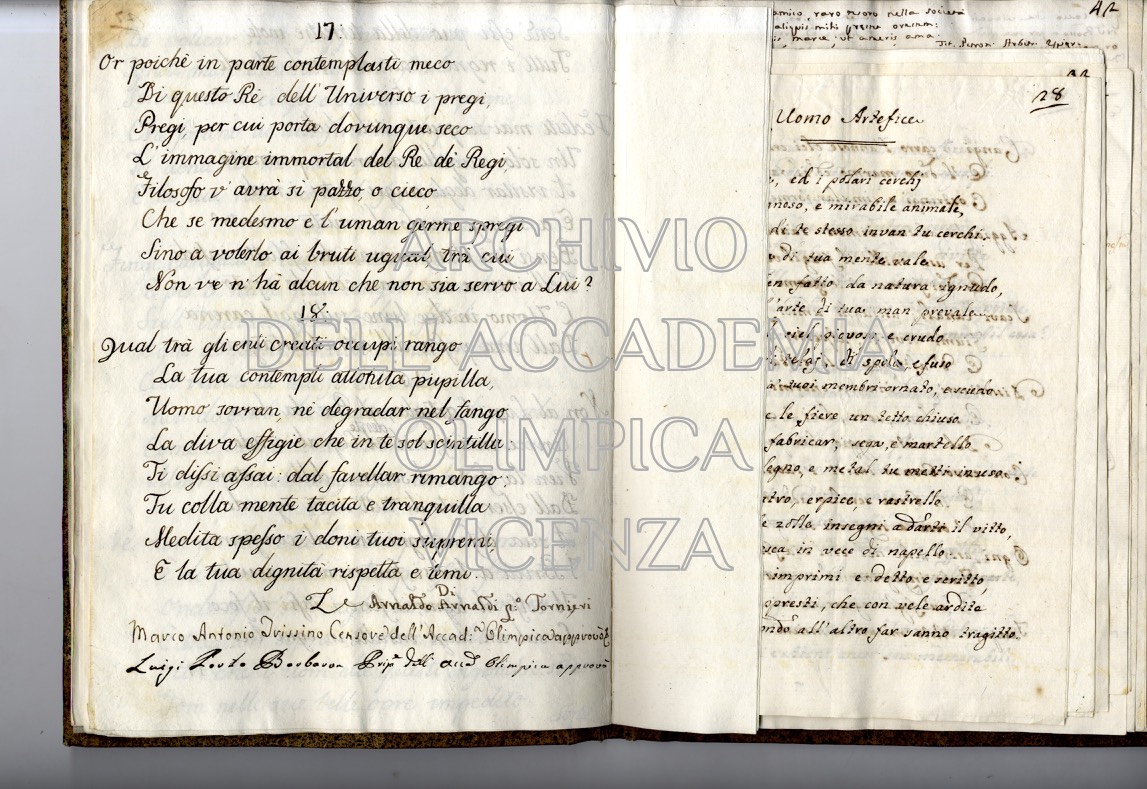 17.
Or poichè in parte contemplasti meco
Di questo Rè dell' Universo i pregi,
Pregi, per cui porta dovunque seco
L' immagine immortal del Re dè Regi,
Filosofo v' avrà sì pazzo, o cieco,
Che se medesmo e l' uman germe spregi
Sino a volerlo ai bruti ugual, trà cui
Non ve n' hà alcun che non sia servo a Lui?
18.
Qual trà gli enti creati occupi rango
La tua contempli attonita pupilla,
Uomo sovran nè degradar nel fango
La diva effigie che in te sol scintilla.
Ti dissi assai: dal favellar rimango;
Tu colla mente tacita e tranquilla
Medita spesso i doni tuoi supremi,
E la tua dignità rispetta e temi.
Di
Arnaldo Arnaldi Tornieri
Marco Antonio Trissino Censore dell' Accad. Olimpica approvò
Luigi Porto Barbaran Prip. dell' accad. Olimpica approvò
42
amico, raro nella società
marce, ut ameris, ama.
28
Uomo Artefice
ed i polari cerchj
e mirabile animale,
di te stesso invan tu cerchi,
di tua mente vale
fatto da natura ignudo,
arte di tua man prevale
e crudo
telaj, di spola, e fuso
tuoi membri ornato, e scudo
le fiere un tetto chiuso
fabricar, sega, e martello
e metal tu metti in uso
erpice, e rastrello
zolle insegni a darti il vitto,
in vece di napello
imprimi e detto e scritto,
che con vele ardite
all' altro far sanno tragitto.
ARCHIVIO
DELL'ACCADEMIA
OLIMPICA
VICENZA